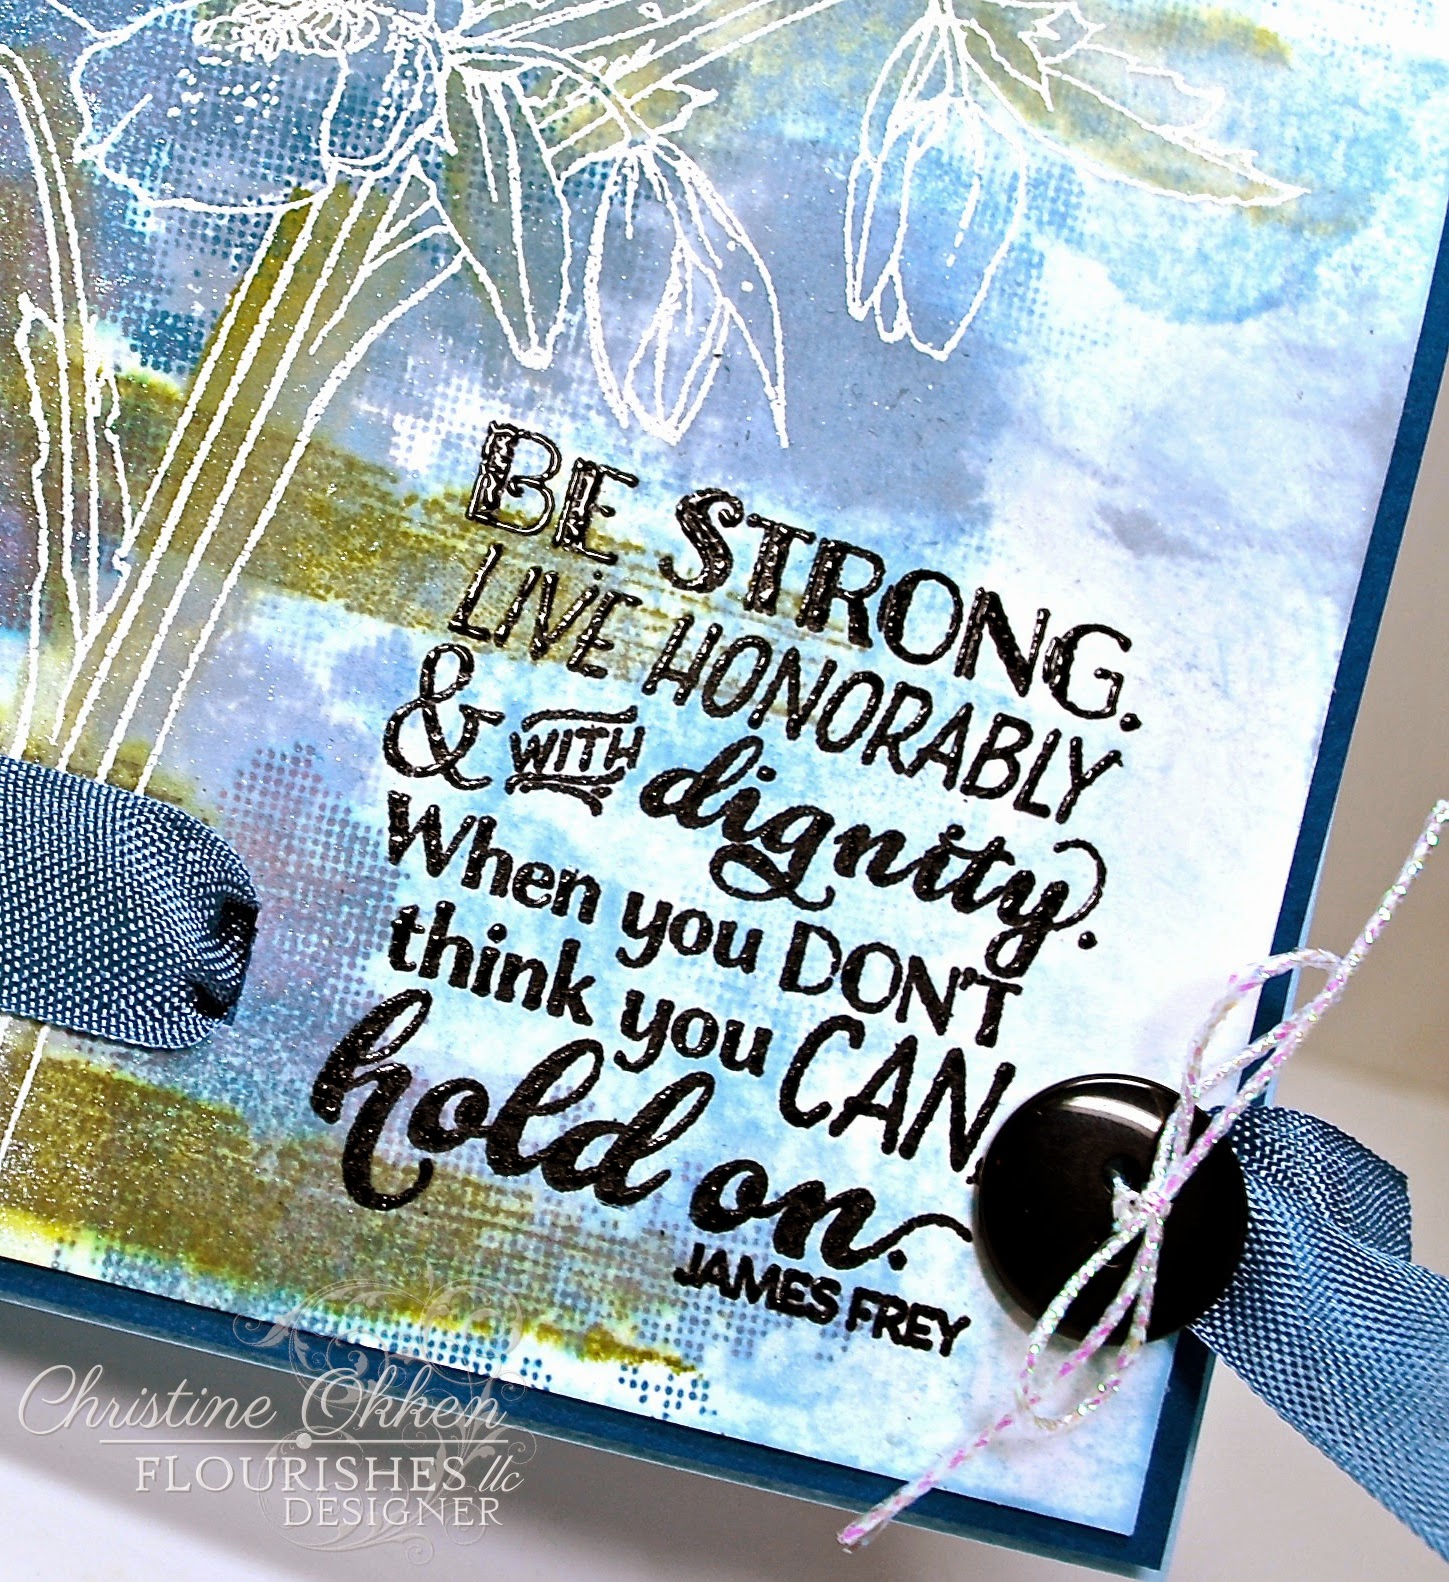 BE STRONG.
LIVE HONORABLY
& WITH dignity.
When you DON'T
think you CAN,
hold on.
JAMES FREY
Christine Okken
FLOURISHES llc
DESIGNER